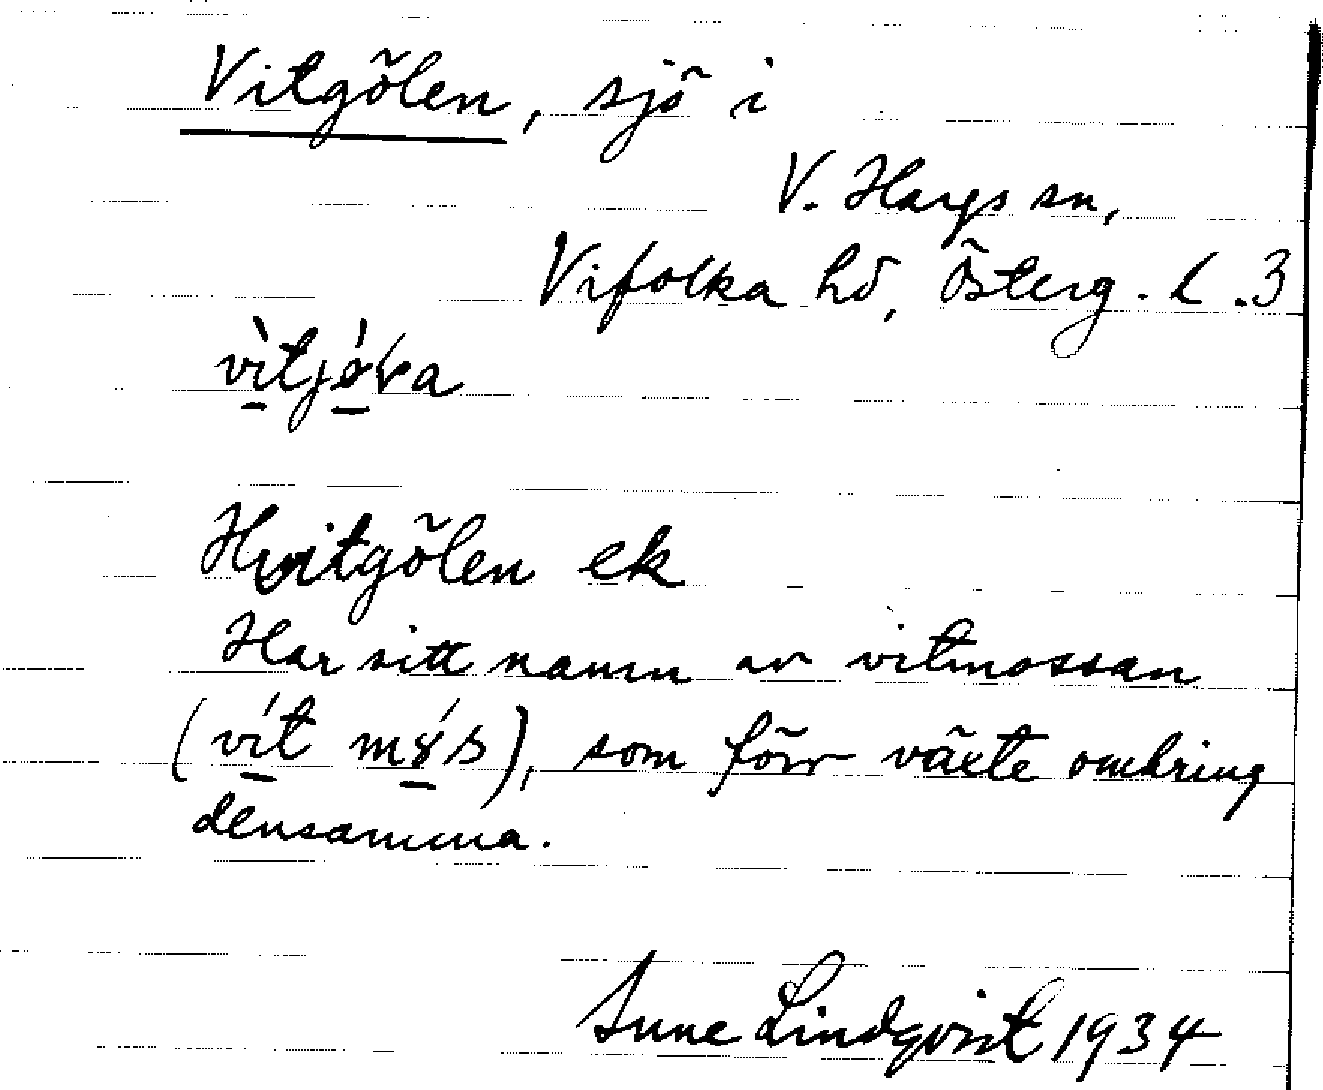 Vitgölen, sjö i
V. Hargs sn,
Vifolka hd, Österg. L. 3
Hvitgölen ek
Har sitt namn av vitmossan
(vít), som förr växte omkring
densamma.
Sune Lindqvist 1934